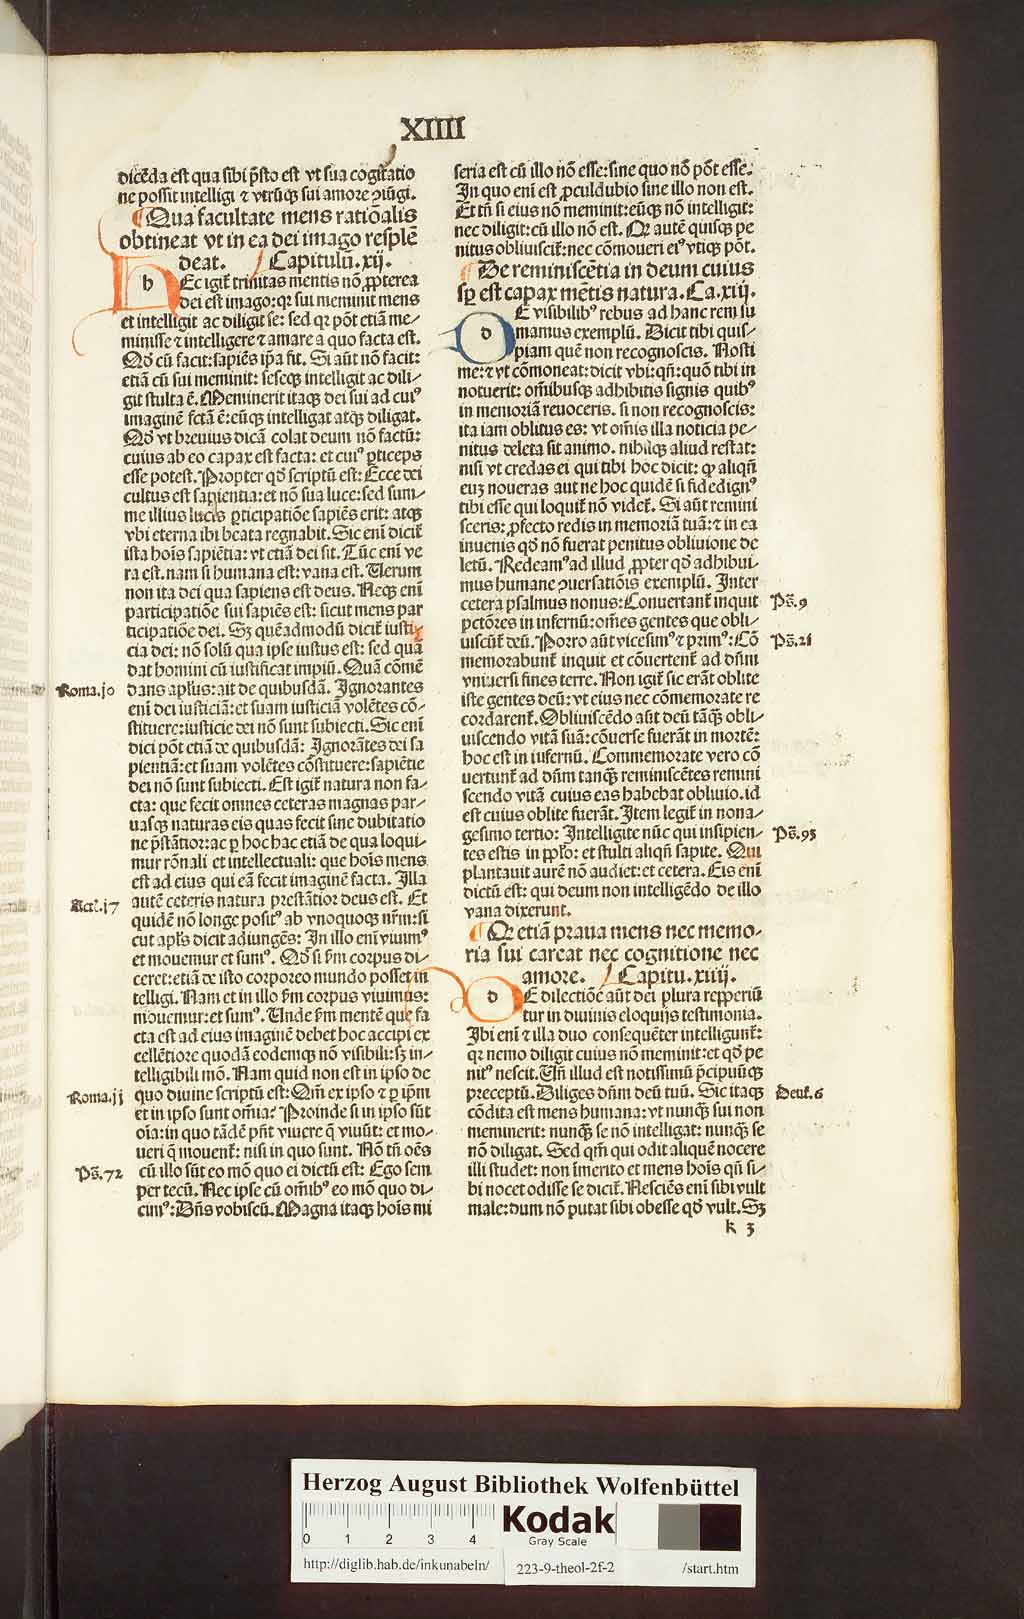 XIIII
dicẽda est qua sibi p̃sto est vt sua cogitatio
ne possit intelligi ⁊ vtrũqꝫ sui amore ↄiũgi.
¶ Qua facultate mens ratiõalis
obtineat vt in ea dei imago resplẽ
deat. Capitulũ.xij.
h Ec igit᷑ trinitas mentis nõ ꝓpterea
dei est imago: qꝛ sui meminit mens
et intelligit ac diligit se: sed qꝛ põt etiã me-
minisse ⁊ intelligere ⁊ amare a quo facta est.
Qd̃ cũ facit: sapiẽs ip̃a fit. Si aũt nõ facit:
etiã cũ sui meminit: seseqꝫ intelligit ac dili-
git stulta ẽ. Meminerit itaqꝫ dei sui ad cuiꝰ
imaginẽ fctã ẽ: eũqꝫ intelligat atqꝫ diligat.
Qd̃ vt breuius dicã colat deum nõ factũ:
cuius ab eo capax est facta: et cuiꝰ ꝑticeps
esse potest. Propter qd̃ scriptũ est: Ecce dei
cultus est sapientia: et nõ sua luce: sed sum-
me illius lucis ꝑticipatiõe sapiẽs erit: atqꝫ
vbi eterna ibi beata regnabit. Sic enĩ dicit᷑
ista hoĩs sapiẽtia: vt etiã dei sit. Tũc enĩ ve
ra est. nam si humana est: vana est. Uerum
non ita dei qua sapiens est deus. Neqꝫ enĩ
participatiõe sui sapiẽs est: sicut mens par
ticipatiõe dei. Sꝫ quẽadmodũ dicit᷑ iusti
cia dei: nõ solũ qua ipse iustus est: sed quã
dat homini cũ iustificat impiũ. Quã cõmẽ
dans apl̃us: ait de quibusdã. Ignorantes
enĩ dei iusticiã: et suam iusticiã volẽtes cõ-
stituere: iusticie dei nõ sunt subiecti. Sic enĩ
dici põt etiã de quibusdã: Ignorãtes dei sa
pientiã: et suam volẽtes cõstituere: sapiẽtie
dei nõ sunt subiecti. Est igit᷑ natura non fa-
cta: que fecit omnes ceteras magnas par-
uasqꝫ naturas eis quas fecit sine dubitatio
ne p̃stãtior: ac ꝑ hoc hac etiã de qua loqui-
mur rõnali et intellectuali: que hoĩs mens
est ad eius qui eã fecit imaginẽ facta. Illa
autẽ ceteris natura prestãtior deus est. Et
quidẽ nõ longe positꝰ ab vnoquoqꝫ nr̃m: si
cut apl̃s dicit adiungẽs: In illo enĩ viuimꝰ
et mouemur et sumꝰ. Qd̃ si fm corpus di-
ceret: etiã de isto corporeo mundo posset in
telligi. Nam et in illo fm corpus viuimus:
mouemur: et sumꝰ. Unde fm mentẽ que fa
cta est ad eius imaginẽ debet hoc accipi ex
cellẽtiore quodã eodemqꝫ nõ visibili: sꝫ in-
telligibili mõ. Nam quid non est in ipso de
quo diuine scriptũ est: Qm̃ ex ipso ⁊ ꝑ ip̃m
et in ipso sunt om̃ia? Proinde si in ipso sũt
oĩa: in quo tãdẽ pñt viuere q̃ viuũt: et mo-
ueri q̃ mouent᷑: nisi in quo sunt. Nõ tñ oẽs
cũ illo sũt eo mõ quo ei dictũ est: Ego sem
per tecũ. Nec ipse cũ om̃ibꝰ eo mõ quo di-
cimꝰ: Dñs vobiscũ. Magna itaqꝫ hoĩs mi
Roma.jo
Act᷑.j7
Roma.jj
Ps̃.72
seria est cũ illo nõ esse: sine quo nõ põt esse.
In quo enĩ est ꝓculdubio sine illo non est.
Et tñ si eius nõ meminit: eũqꝫ nõ intelligit:
nec diligit: cũ illo nõ est. Qꝛ autẽ quisqꝫ pe
nitus obliuiscit᷑: nec cõmoueri eiꝰ vtiqꝫ põt.
¶ De reminiscẽtia in deum cuius
sꝑ est capax mẽtis natura. Ca.xiij.
d E visibilibꝰ rebus ad hanc rem su
mamus exemplũ. Dicit tibi quis-
piam quẽ non recognoscis. Nosti
me: ⁊ vt cõmoneat: dicit vbi: qñ: quõ tibi in
notuerit: om̃ibusqꝫ adhibitis signis quibꝰ
in memoriã reuoceris. si non recognoscis:
ita iam oblitus es: vt om̃is illa noticia pe-
nitus deleta sit animo. nihilqꝫ aliud restat:
nisi vt credas ei qui tibi hoc dicit: ꝙ aliqñ
euꝫ noueras aut ne hoc quidẽ si fidedignꝰ
tibi esse qui loquit᷑ nõ videt᷑. Si aũt remini
sceris: ꝓfecto redis in memoriã tuã: ⁊ in ea
inuenis qd̃ nõ fuerat penitus obliuione de
letũ. Redeamꝰ ad illud ꝓpter qd̃ adhibui-
mus humane ↄuersatiõis exemplũ. Inter
cetera psalmus nonus: Conuertant᷑ inquit
pctõres in infernũ: om̃es gentes que obli-
uiscũt᷑ deũ. Porro aũt vicesimꝰ ⁊ primꝰ: Cõ
memorabunt᷑ inquit et cõuertent᷑ ad dñm
vniuersi fines terre. Non igit᷑ sic erãt oblite
iste gentes deũ: vt eius nec cõmemorate re
cordarent᷑. Obliuiscẽdo aũt deũ tãqꝫ obli-
uiscendo vitã suã: cõuerse fuerãt in mortẽ:
hoc est in infernũ. Commemorate vero cõ
uertunt᷑ ad dñm tanqꝫ reminiscẽtes remini
scendo vitã cuius eas habebat obliuio. id
est cuius oblite fuerãt. Item legit᷑ in nona-
gesimo tertio: Intelligite nũc qui insipien-
tes estis in pp̃lo: et stulti aliqñ sapite. Qui
plantauit aurẽ nõ audiet: et cetera. Eis enĩ
dictũ est: qui deum non intelligẽdo de illo
vana dixerunt.
¶ Qꝛ etiã praua mens nec memo-
ria sui careat nec cognitione nec
amore. Capitu.xiiij.
d E dilectiõe aũt dei plura repperiũ
tur in diuinis eloquijs testimonia.
Ibi enĩ ⁊ illa duo consequẽter intelligunt᷑:
qꝛ nemo diligit cuius nõ meminit: et qd̃ pe
nitꝰ nescit. Uñ illud est notissimũ p̃cipuũqꝫ
preceptũ. Diliges dñm deũ tuũ. Sic itaqꝫ
cõdita est mens humana: vt nunqꝫ sui non
meminerit: nunqꝫ se nõ intelligat: nunqꝫ se
nõ diligat. Sed qm̃ qui odit aliquẽ nocere
illi studet: non ĩmerito et mens hoĩs qñ si-
bi nocet odisse se dicit᷑. Nesciẽs enĩ sibi vult
male: dum nõ putat sibi obesse qd̃ vult. Sꝫ
k 3
Ps̃.9
Ps̃.21
Ps̃.93
Deut᷑.6
Herzog August Bibliothek Wolfenbüttel
0 1 2 3 4
Kodak
Gray Scale
http://diglib.hab.de/inkunabeln/
223-9-theol-2f-2
/start.htm